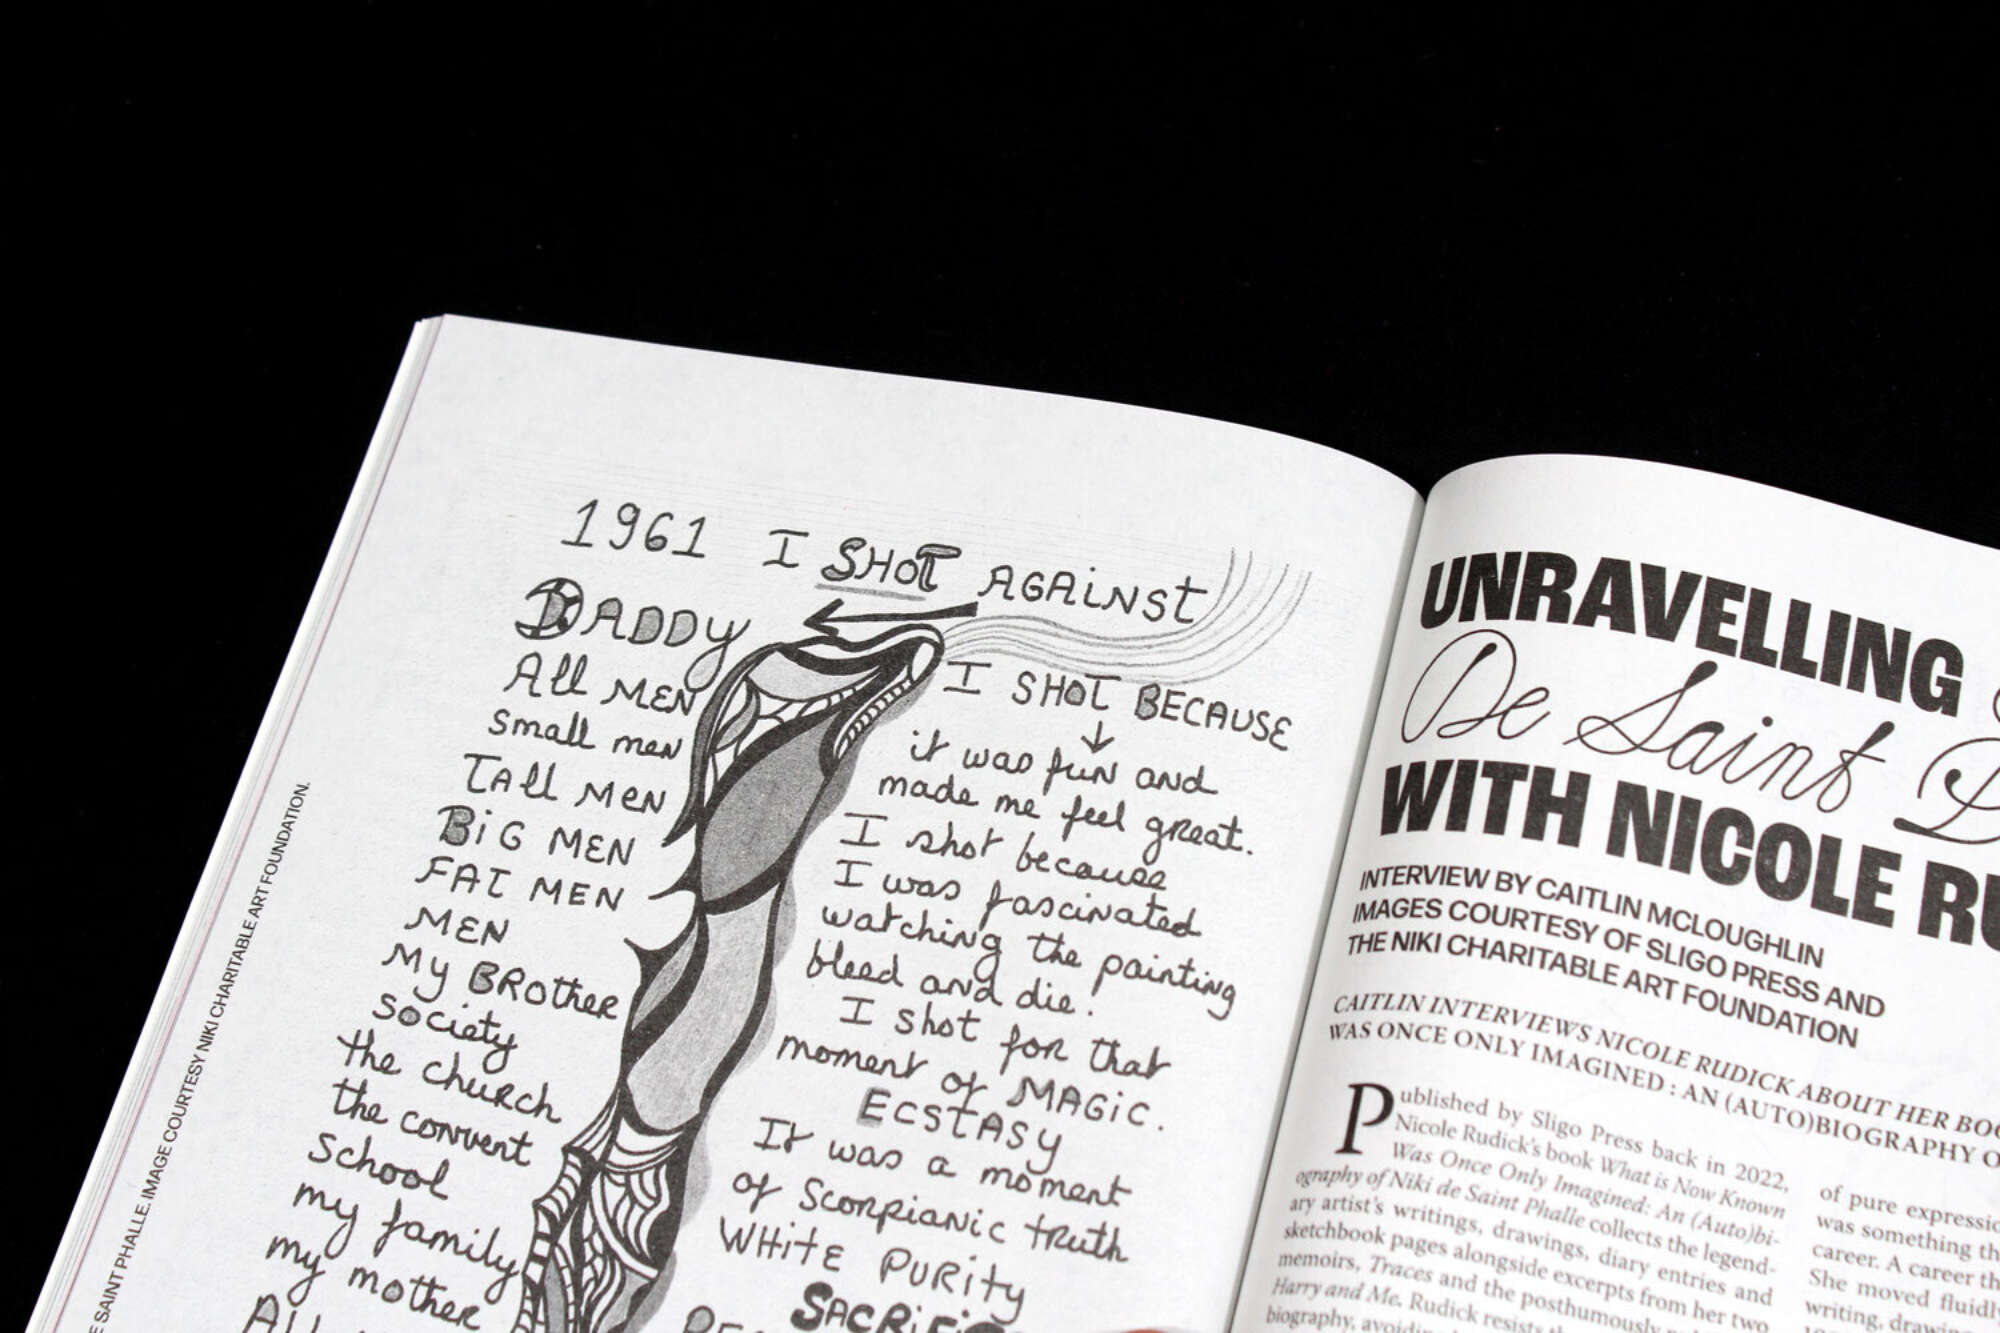 1961 I SHOT AGAINST
DADDY
All MEN
small men
TAll MEN
BIG MEN
FAT MEN
MEN
MY BROther
society
the church
the convent
School
my family
my mother
I SHOT BECAUSE
it was fun and
made me feel great.
I shot because
I was fascinated
watching the painting
bleed and die.
I shot for that
moment of MAGIC.
ECSTASY
It was a moment
of Scorpianic truth
WHITE PURITY
SAINT PHALLE, IMAGE COURTESY NIKI CHARITABLE ART FOUNDATION.
UNRAVELLING
De Saint
WITH NICOLE
INTERVIEW BY CAITLIN MCLOUGHLIN
IMAGES COURTESY OF SLIGO PRESS AND
THE NIKI CHARITABLE ART FOUNDATION
CAITLIN INTERVIEWS NICOLE RUDICK ABOUT HER
WAS ONCE ONLY IMAGINED : AN (AUTO)BIOGRAPHY
Published by Sligo Press back in 2022,
Nicole Rudick's book What is Now Known
Was Once Only Imagined: An (Auto)bi-
ography of Niki de Saint Phalle collects the legend-
ary artist's writings, drawings, diary entries and
sketchbook pages alongside excerpts from her two
memoirs, Traces and the posthumously
Harry and Me. Rudick resists
biography,
of pure
was something
career. A career
She moved
writing,